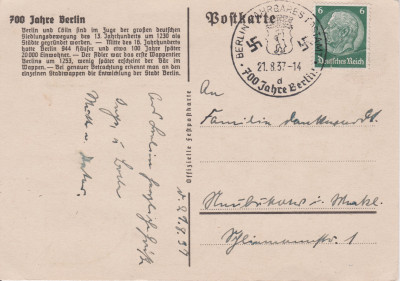 700 Jahre Berlin
Berlin und Cölln sind im Zuge der großen deutschen
Siedlungsbewegung des 13. Jahrhunderts um 1230 als
Städte gegründet worden. - Mitte des 16. Jahrhunderts
hatte Berlin 844 Häuser und etwa 100 Jahre später
20 000 Einwohner. - Der Adler war das erste Wappentier
Berlins um 1253, wenig später erscheint der Bär im
Wappen. - Bei genauer Betrachtung erkennt man an den
einzelnen Stadtwappen die Entwicklung der Stadt Berlin.
Postkarte
BERLIN FAHRBARES POSTAMT
21.8.37-14
a
700 Jahre Berlin
6 6
Deutsches Reich
Offizielle Festpostkarte
d. 21.8.37
Aus Berlin herzliche Grüße
An
Familie
Neubukow i. Meckl.
Schliemannstr. 1